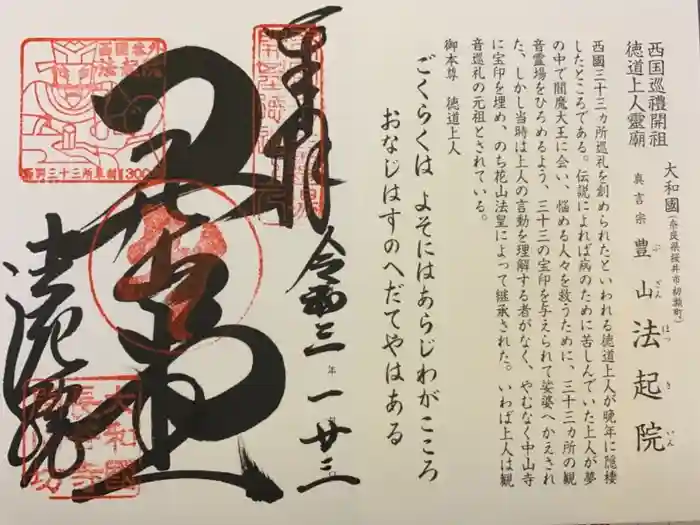 西国巡禮開祖
徳道上人靈廟
大和國(奈良県桜井市初瀬町)
真言宗 豊山 法起院
ぶざん ほっきいん
西國三十三ヵ所巡礼を創められたといわれる徳道上人が晩年に隠棲
したところである。伝説によれば病のために苦しんでいた上人が夢
の中で閻魔大王に会い、悩める人々を救うために、三十三ヵ所の観
音霊場をひろめるよう、三十三の宝印を与えられて娑婆へかえされ
た。しかし当時は上人の言動を理解する者がなく、やむなく中山寺
に宝印を埋め、のち花山法皇によって継承された。いわば上人は観
音巡礼の元祖とされている。
御本尊 徳道上人
ごくらくは よそにはあらじわがこころ
おなじはすのへだてやはある
奉拝
令和三年一月廿三日
法起院
西国番外
法起院
西国三十三所草創1300年
大和國
長谷寺